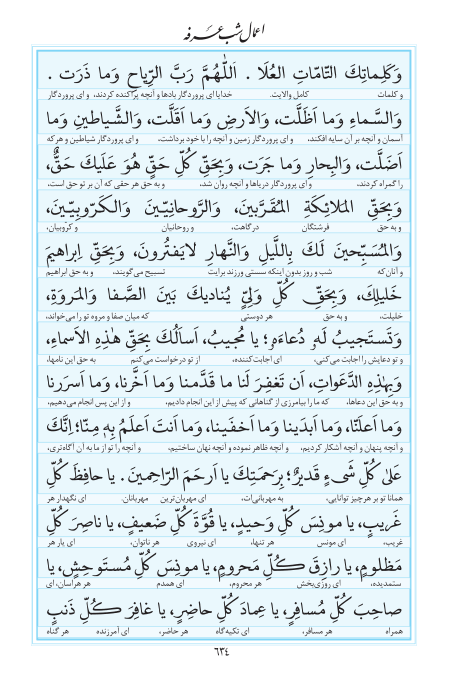 اعمال شب عرفه
وَکَلِماتِکَ التّامّاتِ العُلَا . اَللّٰهُمَّ رَبَّ الرِّیاحِ وَما ذَرَت .
و کلمات کامل والایت. خدایا ای پروردگار بادها و آنچه پراکنده کردند، و ای پروردگار
وَالسَّماءِ وَما اَظَلَّت، وَالاَرضِ وَما اَقَلَّت، وَالشَّیاطینِ وَما
آسمان و آنچه بر آن سایه افکند، و ای پروردگار زمین و آنچه را با خود برداشت، و ای پروردگار شیاطین و هر که
اَضَلَّت، وَالبِحارِ وَما جَرَت، وَبِحَقِّ کُلِّ حَقٍّ هُوَ عَلَیکَ حَقٌّ،
را گمراه کردند، و ای پروردگار دریاها و آنچه روان شد، و به حق هر حقی که آن بر تو حق است،
وَبِحَقِّ المَلائِکَةِ المُقَرَّبینَ، وَالرَّوحانِیّینَ وَالکَرّوبِیّینَ،
و به حق فرشتگان درگاهت، و روحانیان و کروبیان،
وَالمُسَبِّحینَ لَکَ بِاللَّیلِ وَالنَّهارِ لایَفتُرونَ، وَبِحَقِّ اِبراهیمَ
و آنان که شب و روز بدون اینکه سستی ورزند برایت تسبیح می‌گویند، و به حق ابراهیم
خَلیلِکَ، وَبِحَقِّ کُلِّ وَلِیٍّ یُنادیکَ بَینَ الصَّفا وَالمَروَةِ،
خلیلت، و به حق هر دوستی که میان صفا و مروه تو را می‌خواند،
وَتَستَجیبُ لَهُ دُعاءَهُ؛ یا مُجیبُ، اَسأَلُکَ بِحَقِّ هذِهِ الاَسماءِ،
و تو دعایش را اجابت می‌کنی، ای اجابت‌کننده، از تو درخواست می‌کنم به حق این نامها،
وَبِهذِهِ الدَّعَواتِ، اَن تَغفِرَ لَنا ما قَدَّمنا وَما اَخَّرنا، وَما اَسرَرنا
و به حق این دعاها، که ما را بیامرزی از گناهانی که پیش از این انجام دادیم، و از این پس انجام می‌دهیم،
وَما اَعلَنّا، وَما اَبدَینا وَما اَخفَینا، وَما اَنتَ اَعلَمُ بِهِ مِنّا؛ اِنَّکَ
و آنچه پنهان و آنچه آشکار کردیم، و آنچه ظاهر نموده و آنچه نهان ساختیم، و آنچه را تو از ما به آن آگاه‌تری،
عَلیٰ کُلِّ شَیءٍ قَدیرٌ؛ بِرَحمَتِکَ یا اَرحَمَ الرّاحِمینَ . یا حافِظَ کُلِّ
همانا تو بر هر چیز توانایی، به مهربانی‌ات، ای مهربان‌ترین مهربانان. ای نگهدار هر
غَریبٍ، یا مونِسَ کُلِّ وَحیدٍ، یا قُوَّةَ کُلِّ ضَعیفٍ، یا ناصِرَ کُلِّ
غریب، ای مونس هر تنها، ای نیروی هر ناتوان، ای یار هر
مَظلومٍ، یا رازِقَ کُلِّ مَحرومٍ، یا مونِسَ کُلِّ مُستَوحِشٍ، یا
ستمدیده، ای روزی‌بخش هر محروم، ای همدم هر هراسان، ای
صاحِبَ کُلِّ مُسافِرٍ، یا عِمادَ کُلِّ حاضِرٍ، یا غافِرَ کُلِّ ذَنبٍ
همراه هر مسافر، ای تکیه‌گاه هر حاضر، ای آمرزنده هر گناه
٦٣٤